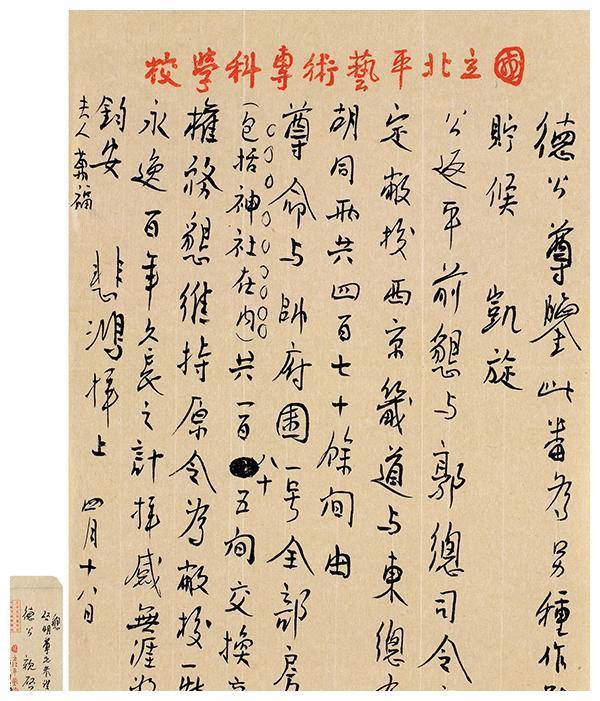 國立北平藝術專科學校
德公尊鑒此番為另種作
貯候　凱旋
公返平前懇與郭總司令
定敝校西京畿道與東總
胡同兩共四百七十餘間由
尊命與帥府園一号全部房
(包括神社在內)共一百八十五間交換
權務懇維持原令為敝校一
永逸百年久長之計拜感無涯
鈞安
夫人萬福
悲鴻拜上　四月十八日
德公